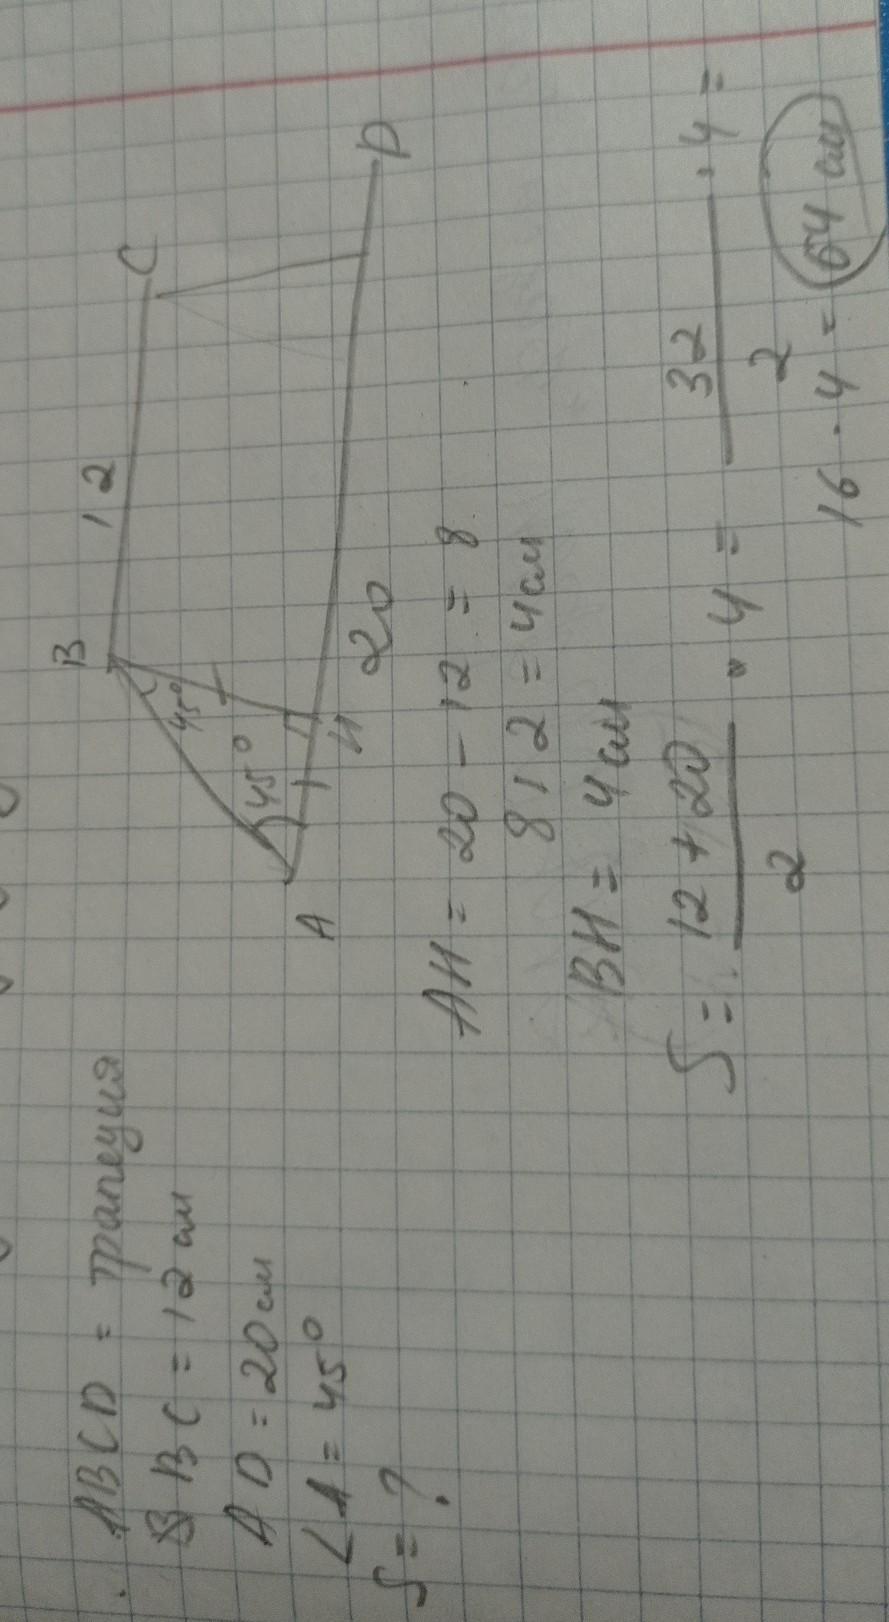 ABCD = трапеция
BC = 12 см
AD = 20 см
∠A = 45°
S = ?
B 12 C
45°
45°
A H 20 D
AH = 20 - 12 = 8
8 : 2 = 4 см
BH = 4 см
S = \frac{12 + 20}{2} · 4 = \frac{32}{2} · 4 =
16 · 4 = 64 см